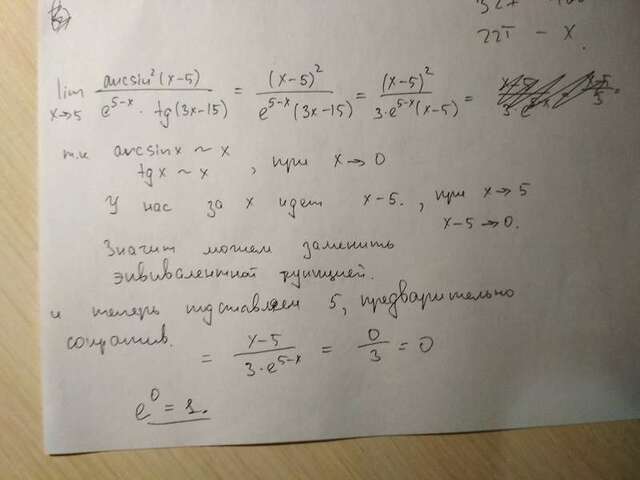 22π - x.
lim x→5 arcsin²(x-5) / e^(5-x) · tg(3x-15) = (x-5)² / e^(5-x) (3x-15) = (x-5)² / 3·e^(5-x) (x-5) =
т.к arcsin x ~ x
tg x ~ x , при x → 0
У нас за x идет x-5. , при x → 5
x-5 → 0.
Значит можем заменить
эквивалентной функцией.
и теперь подставляем 5, предварительно
сократив.
= x-5 / 3·e^(5-x) = 0/3 = 0
e⁰ = 1.